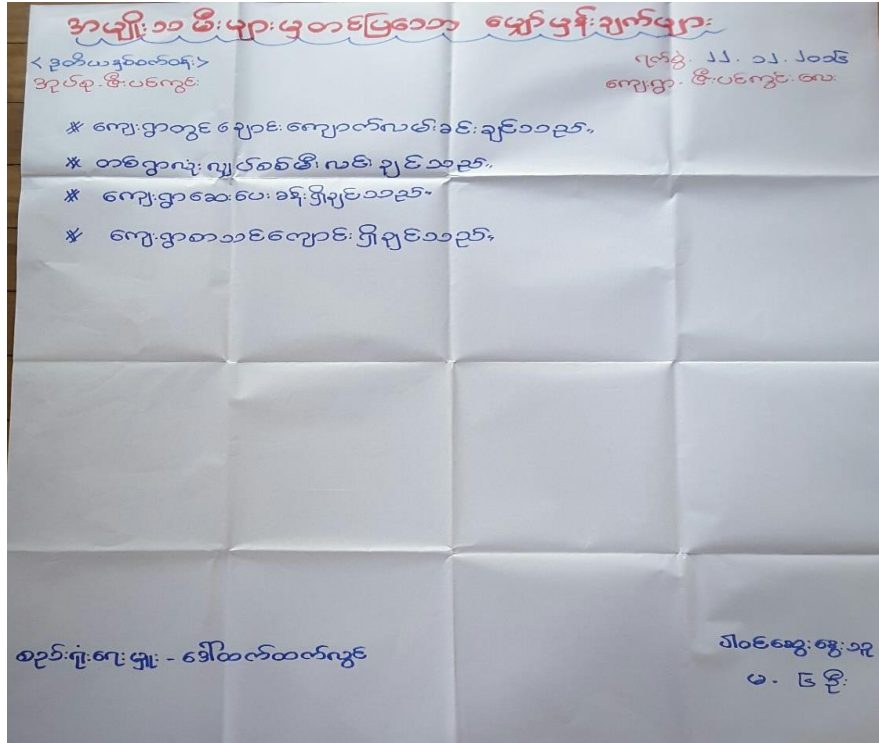 အမျိုးသမီးများမှတင်ပြသော မျှော်မှန်းချက်များ
<ဒုတိယနှစ်ဝက်ဝန်း> ရက်စွဲ. ၂၂. ၁၂. ၂၀၁၆
အုပ်စု. ဇီးပင်ကွင်း ကျေးရွာ. ဇီးပင်ကွင်းလေး
* ကျေးရွာတွင် ချောင်းကျောက်လမ်းခင်းချင်သည်။
* တစ်ရွာလုံးလျှပ်စစ်မီးလင်းချင်သည်။
* ကျေးရွာဆေးပေးခန်းရှိချင်သည်။
* ကျေးရွာစာသင်ကျောင်းရှိချင်သည်။
စည်းရုံးရေးမှူး - ဒေါ်ထက်ထက်လွင် ပါဝင်ဆွေးနွေးသူ
မ - ဦး